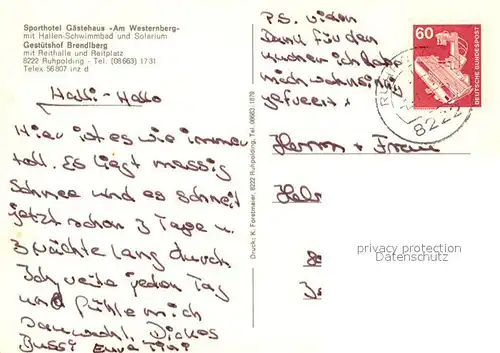 Sporthotel Gästehaus »Am Westernberg«
mit Hallen-Schwimmbad und Solarium
Gestütshof Brendlberg
mit Reithalle und Reitplatz
8222 Ruhpolding - Tel. (08663) 1731
Telex 56807 inz d
Halli-Hallo
Hier ist es wie immer
toll. Es liegt massig
Schnee und es schneit
jetzt schon 3 Tage u.
3 Nächte lang durch
Ich reite jeden Tag
und fühle mich
sauwohl. Dickes
Bussi Eure Tini
Druck: K. Forstmaier, 8222 Ruhpolding, Tel. 08663/1878
PS. vielen
Dank für den
Kuchen ich habe
mich wahnsinnig
gefreut!
60
DEUTSCHE BUNDESPOST
8222
Herrn + Frau
privacy protection
Datenschutz